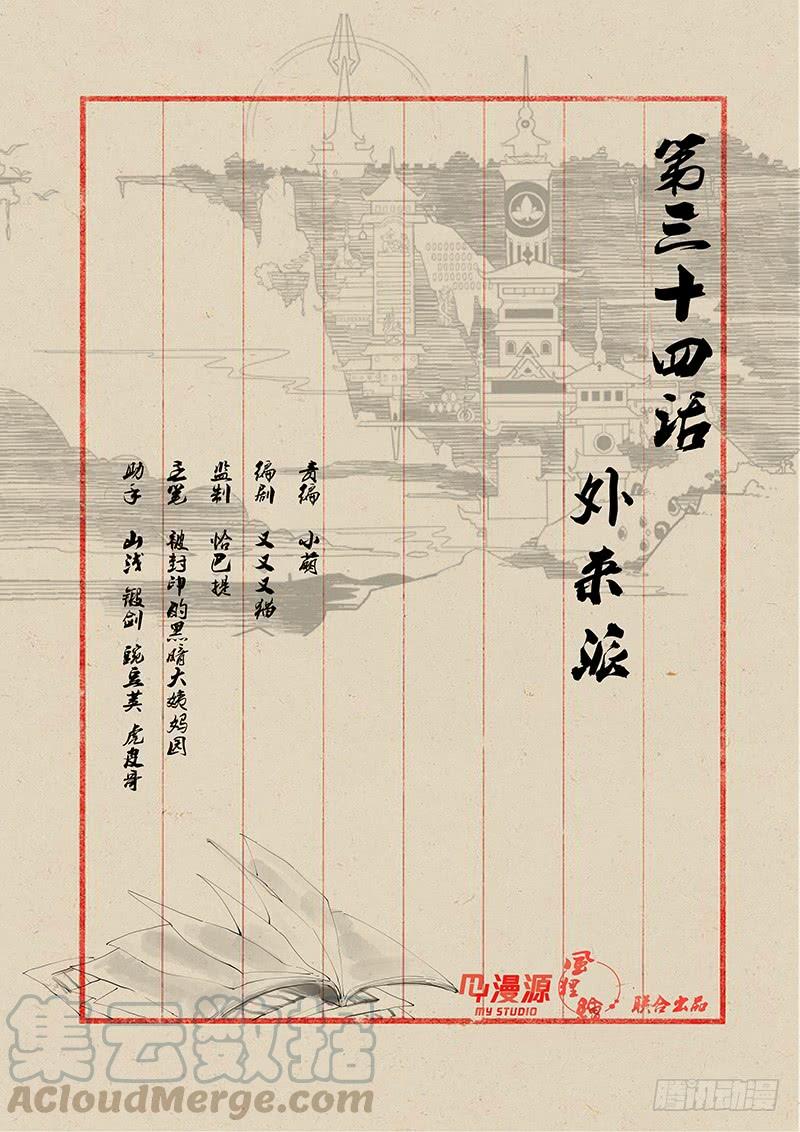 第三十四话
外来派
责编 小萌
编剧 又又又猫
监制 恰巴提
主笔 被封印的黑暗大姨妈园
助手 山浅 锻剑 豌豆荚 虎皮哥
漫源
MY STUDIO
联合出品
集云数据
ACloudMerge.com
腾讯动漫